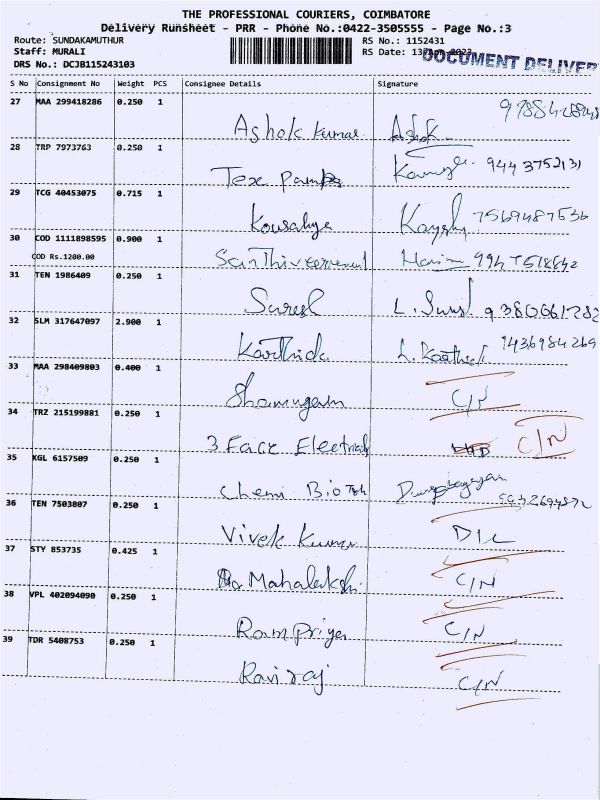 THE PROFESSIONAL COURIERS, COIMBATORE
Delivery Runsheet - PRR - Phone No.:0422-3505555 - Page No.:3
Route: SUNDAKAMUTHUR RS No.: 1152431
Staff: MURALI RS Date: 13-Apr-2023
DOCUMENT DELIVER
DRS No.: DCJB115243103
S No Consignment No Weight PCS Consignee Details Signature
27 MAA 299418286 0.250 1
Ashok Kumar Ashok
28 TRP 7973763 0.250 1
Tex Pamps 944 3752131
29 TCG 40453075 0.715 1
Kowsalya 7569487536
30 COD 1111898595 0.900 1
COD Rs.1200.00
31 TEN 1986409 0.250 1
Suresh L. Suresh
32 SLM 317647097 2.900 1
Karthick L. Karthick
33 MAA 298409803 0.400 1
Shanmugam C/N
34 TRZ 215199881 0.250 1
3 Face Electricals C/N
35 KGL 6157509 0.250 1
Chemi Bio Teh
36 TEN 7503807 0.250 1
Vivek Kumar D/L
37 STY 853735 0.425 1
Mahalakshi C/N
38 VPL 402094090 0.250 1
Rampriya C/N
39 TDR 5408753 0.250 1
Raviraj C/N